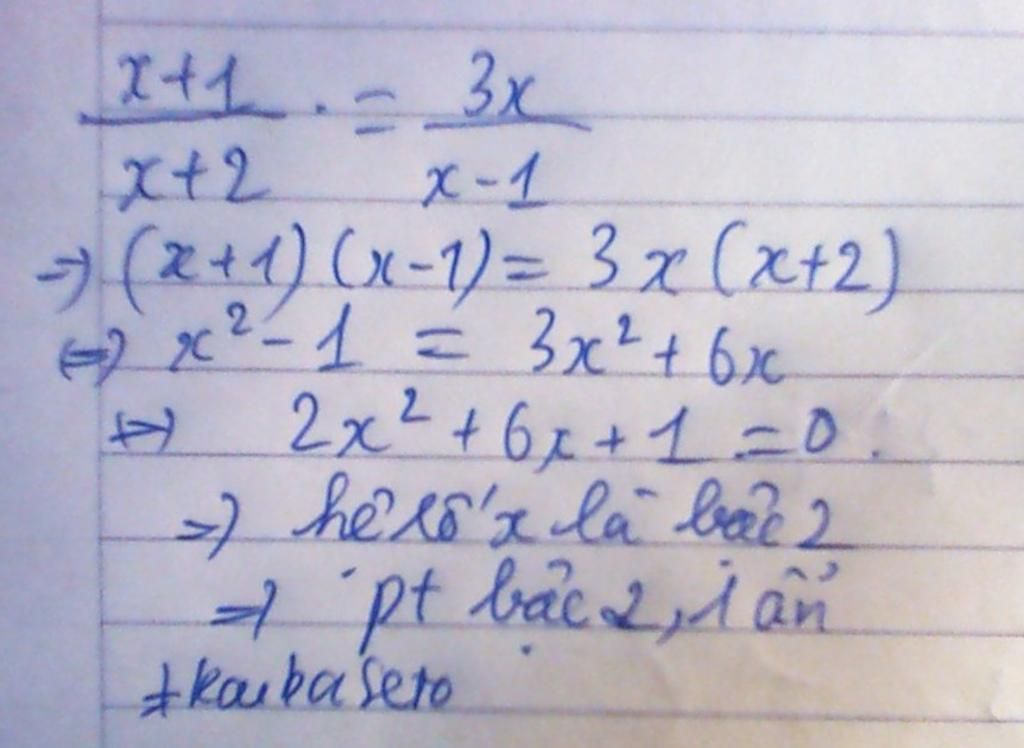 x+1 / x+2 . = 3x / x-1
=> (x+1)(x-1) = 3x(x+2)
<=> x² - 1 = 3x² + 6x
<=> 2x² + 6x + 1 = 0.
=> hệ số x là bậc 2
=> pt bậc 2, 1 ẩn
+kaibaseto